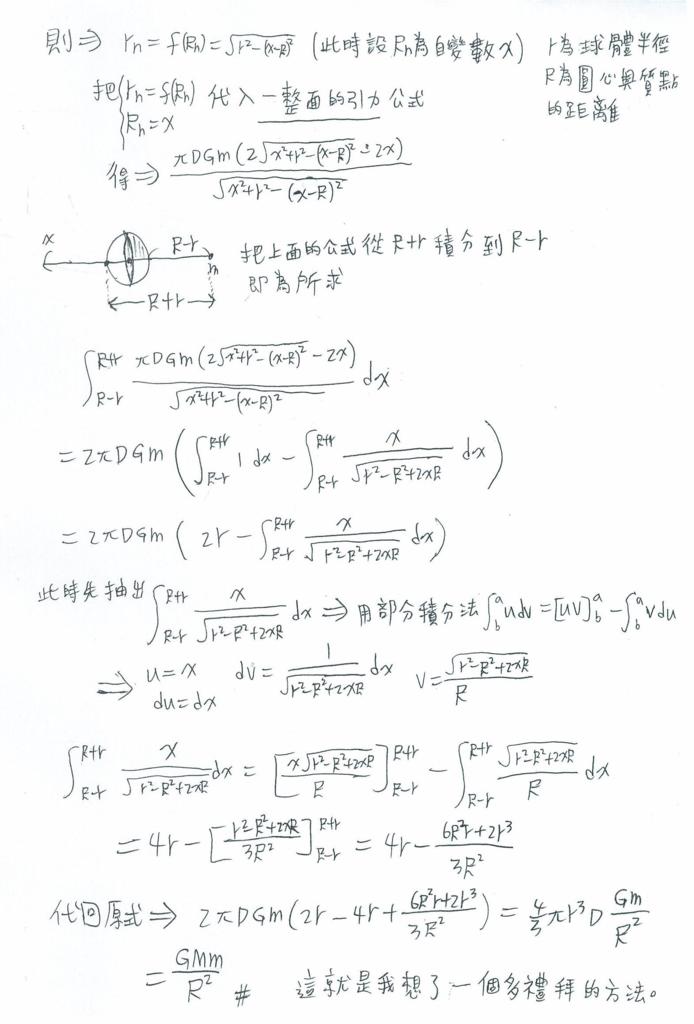 則⇒ rn = f(Rn) = √(r²-(x-R)²) (此時設Rn為自變數x) r為球體半徑
R為圓心與質點
的距離
把{rn = f(Rn) 代入一整面的引力公式
Rn = x
得⇒ πDGm(2√(x²+r²-(x-R)²) - 2x) / √(x²+r²-(x-R)²)
x R-r m
R+r
把上面的公式從R+r積分到R-r
即為所求
∫_{R-r}^{R+r} πDGm(2√(x²+r²-(x-R)²) - 2x) / √(x²+r²-(x-R)²) dx
= 2πDGm(∫_{R-r}^{R+r} 1 dx - ∫_{R-r}^{R+r} x / √(r²-R²+2xR) dx)
= 2πDGm(2r - ∫_{R-r}^{R+r} x / √(r²-R²+2xR) dx)
此時先抽出 ∫_{R-r}^{R+r} x / √(r²-R²+2xR) dx ⇒ 用部分積分法 ∫_b^a udv = [uv]_b^a - ∫_b^a vdu
⇒ u = x dv = 1 / √(r²-R²+2xR) dx v = √(r²-R²+2xR) / R
du = dx
∫_{R-r}^{R+r} x / √(r²-R²+2xR) dx = [x√(r²-R²+2xR) / R]_{R-r}^{R+r} - ∫_{R-r}^{R+r} √(r²-R²+2xR) / R dx
= 4r - [r²-R²+2xR / 3R²]_{R-r}^{R+r} = 4r - 6R²r+2r³ / 3R²
代回原式⇒ 2πDGm(2r - 4r + 6R²r+2r³ / 3R²) = 4/3 πr³D Gm / R²
= GMm / R² # 這就是我想了一個多禮拜的方法。